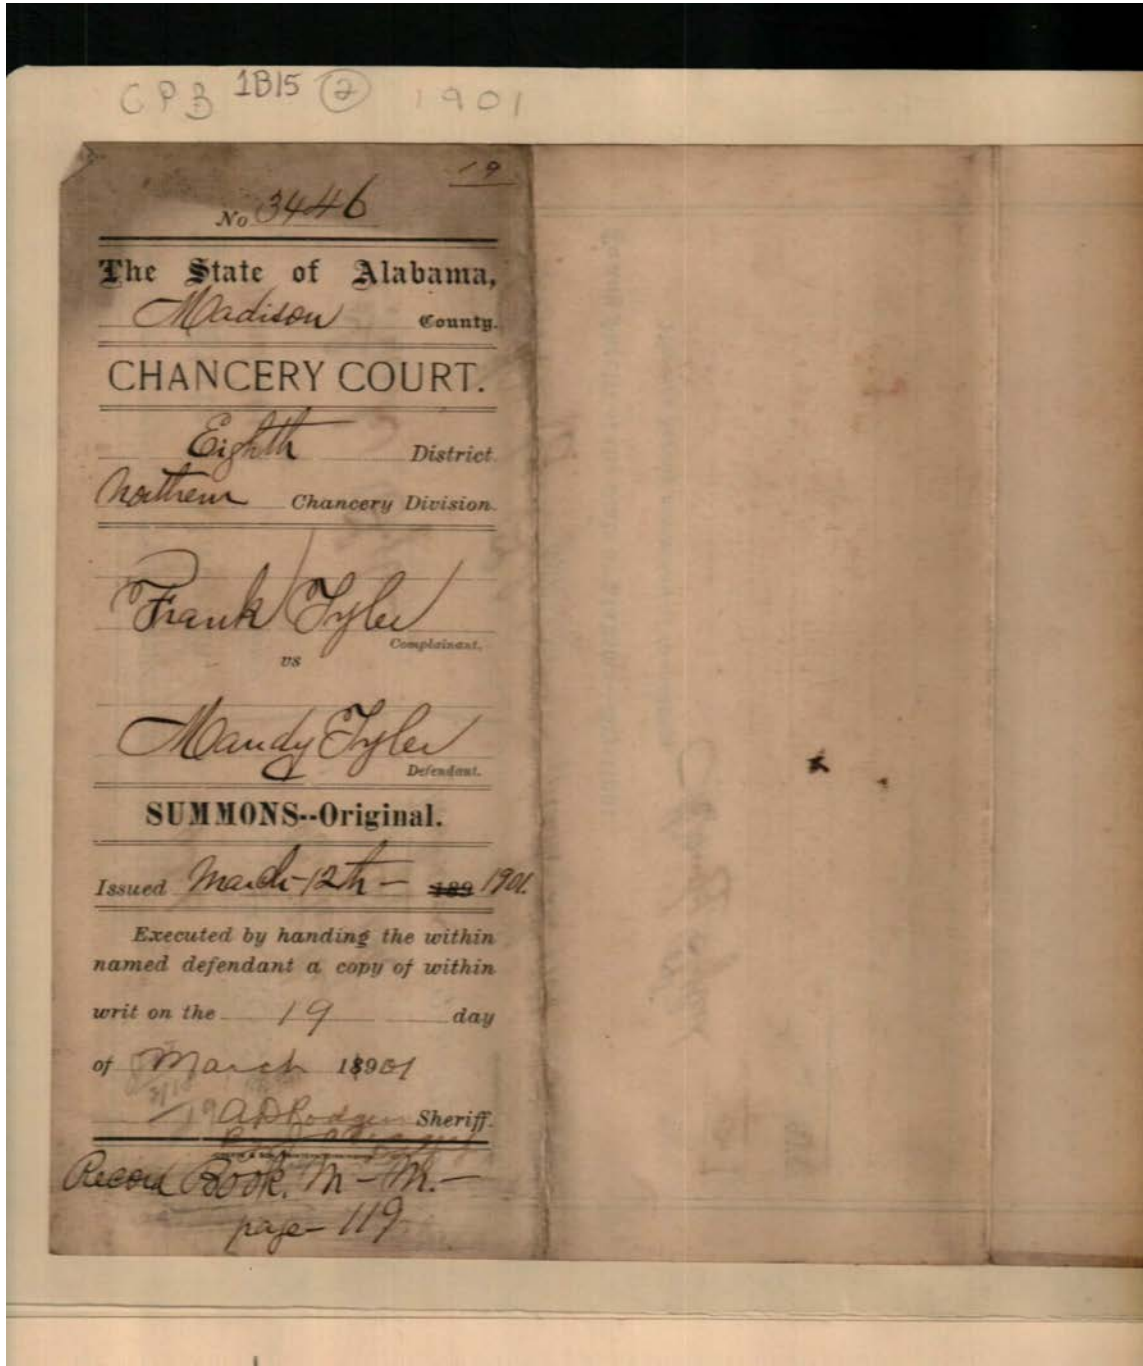 CPB 1B15 2 1901
19
No 3446
The State of Alabama,
Madison County.
CHANCERY COURT.
Eighth District.
Northern Chancery Division.
Frank Tyler
Complainant.
vs
Mandy Tyler
Defendant.
SUMMONS--Original.
Issued March-12th- 189 1901.
Executed by handing the within
named defendant a copy of within
writ on the 19 day
of March 18901
AD Rodgers Sheriff.
Record Book. M-M.-
page-119